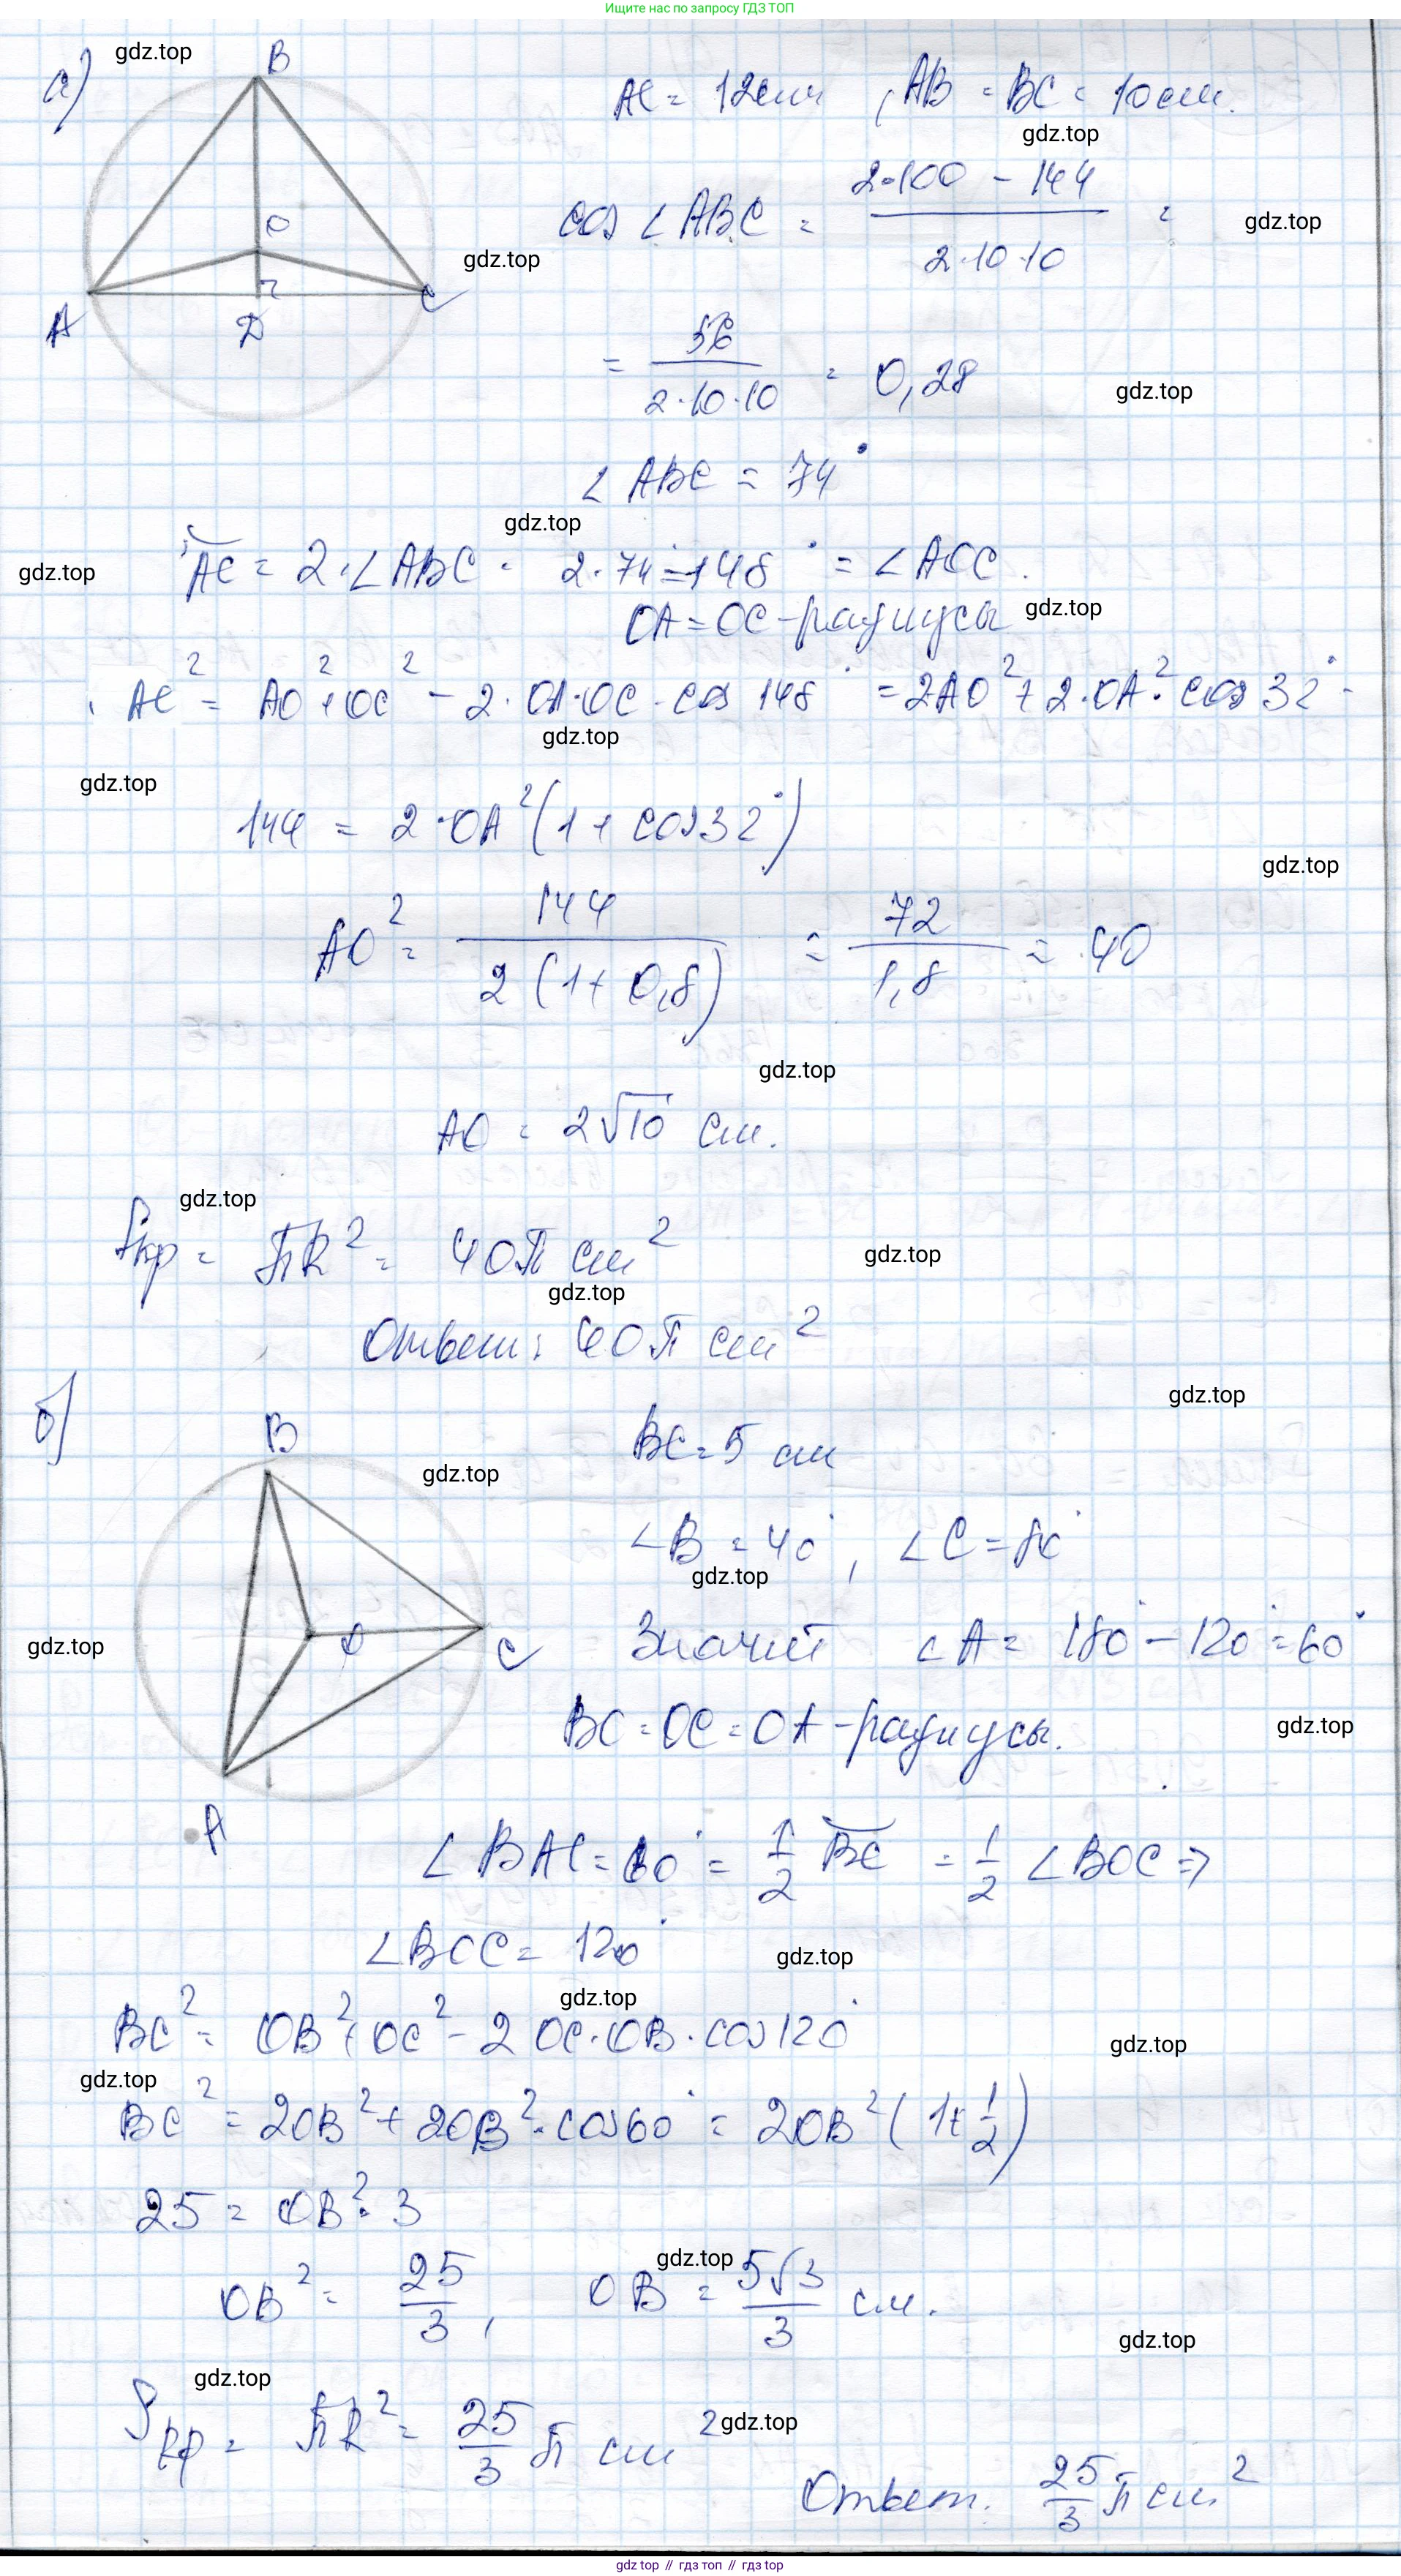 Ищите нас по запросу ГДЗ ТОП
а) gdz.top B
AC = 12 см, AB = BC = 10 см.
gdz.top
cos ∠ABC = (2·100 - 144)/(2·10·10) =
gdz.top
O
gdz.top
A D C
= 56/(2·10·10) = 0,28
gdz.top
∠ABC = 74°
gdz.top
gdz.top
◡AC = 2·∠ABC = 2·74° = 148° = ∠AOC.
OA = OC - радиусы
gdz.top
AC² = AO² + OC² - 2·OA·OC·cos 148° = 2AO² + 2·OA²·cos 32°
gdz.top
gdz.top
144 = 2·OA²(1 + cos 32°)
gdz.top
AO² = 144/(2(1 + 0,8)) = 72/1,8 = 40
gdz.top
AO = 2√10 см.
gdz.top
Sкр = πR² = 40π см²
gdz.top
gdz.top
Ответ: 40π см²
gdz.top
б) B
BC = 5 см
gdz.top
∠B = 40°, ∠C = 80°
gdz.top
gdz.top
O C
Значит ∠A = 180° - 120° = 60°
BO = OC = OA - радиусы.
gdz.top
A
∠BAC = 60° = 1/2 ◡BC = 1/2 ∠BOC ⇒
∠BOC = 120°
gdz.top
gdz.top
BC² = OB² + OC² - 2 OC·OB·cos 120°
gdz.top
gdz.top
BC² = 2OB² + 2OB²·cos 60° = 2OB²(1 + 1/2)
25 = OB²·3
gdz.top
OB² = 25/3, OB = 5√3/3 см.
gdz.top
gdz.top
Sкр = πR² = 25/3 π см²
gdz.top
Ответ. 25/3 π см²
gdz top // гдз топ // gdz top